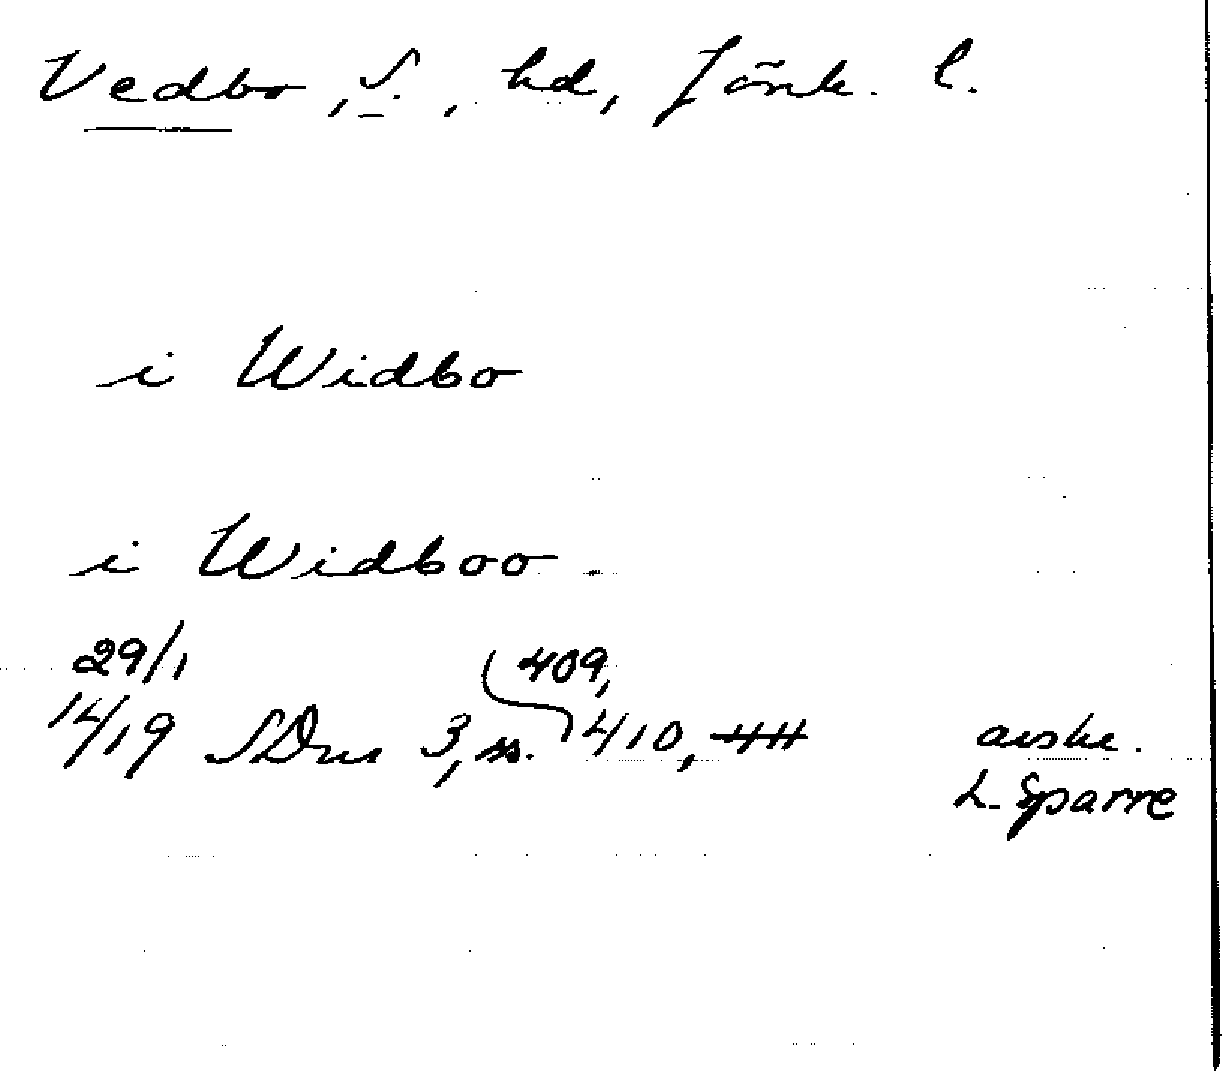 Vedbo, S., hd, Jönk. l.
i Widbo
i Widboo.
29/1 409,
14/19 SDns 3, ss. 410, 411
avskr.
L. Sparre